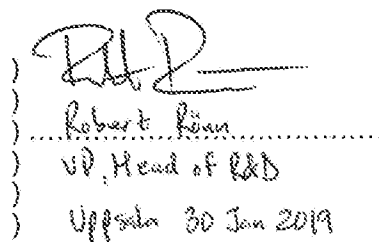 Robert Rönn
VP, Head of R&D
Uppsala 30 Jan 2019